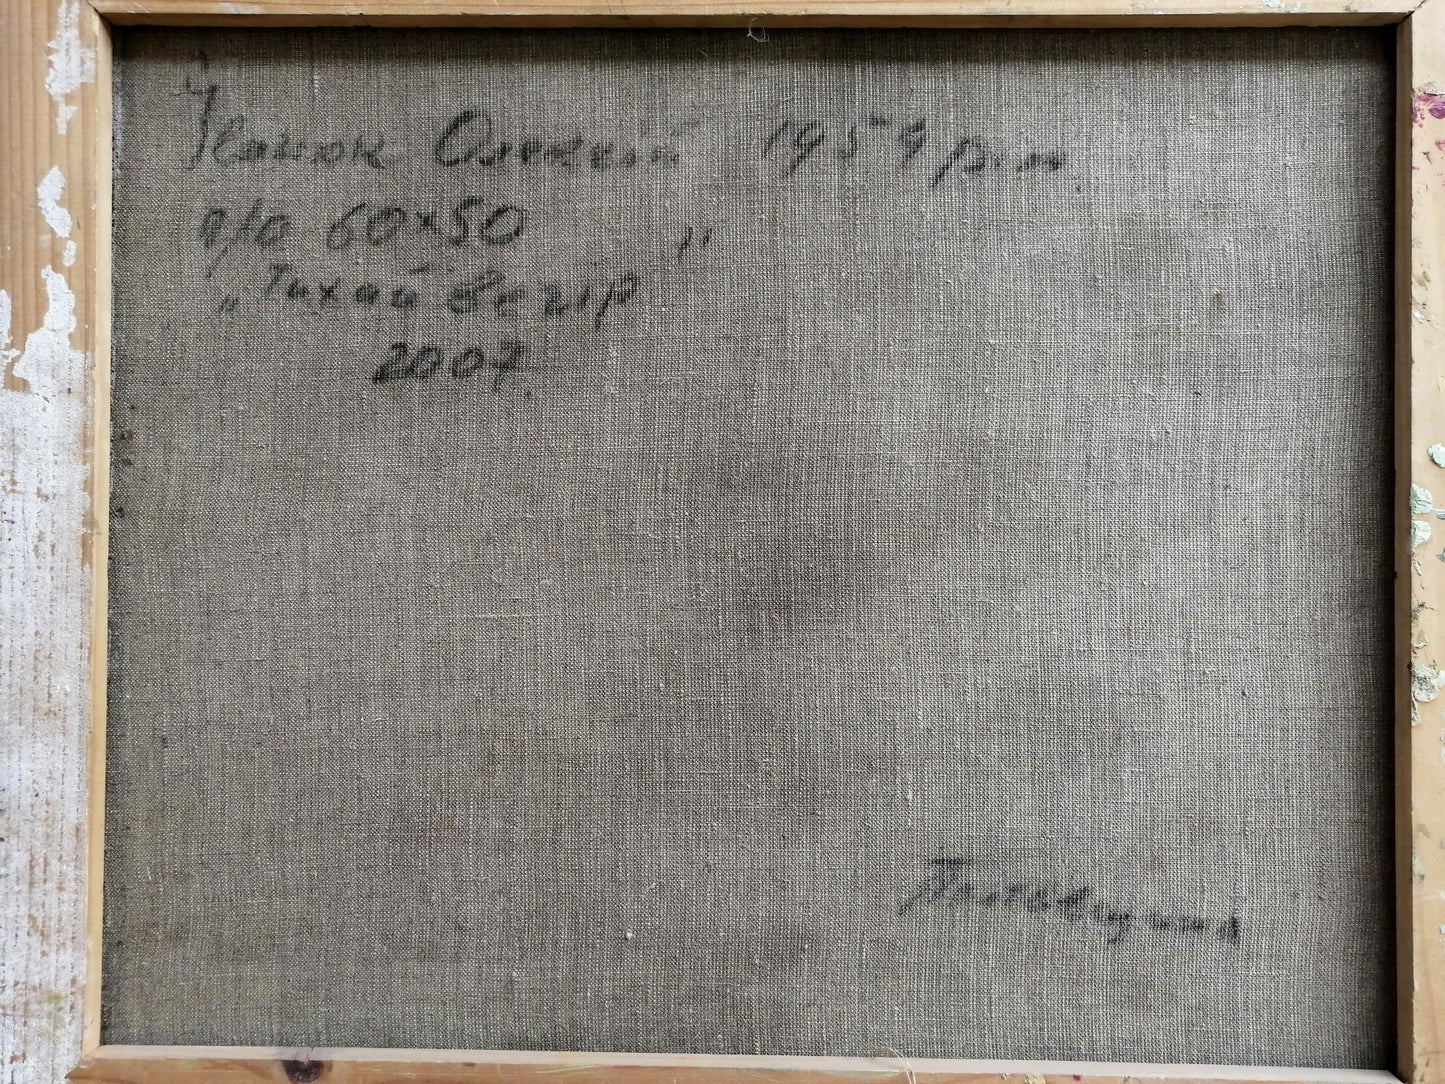 Іванюк Олексій 1954 р.н.
п/о 60х50
„Тихий вечір”
2007